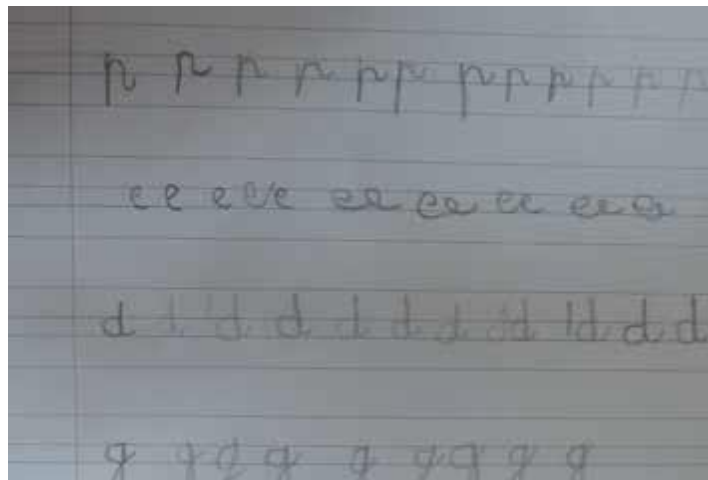 p p p p p p p p p p p p
e e e e e e e e e e e e e e e
d d d d d d d d d d d
g g g g g g g g g